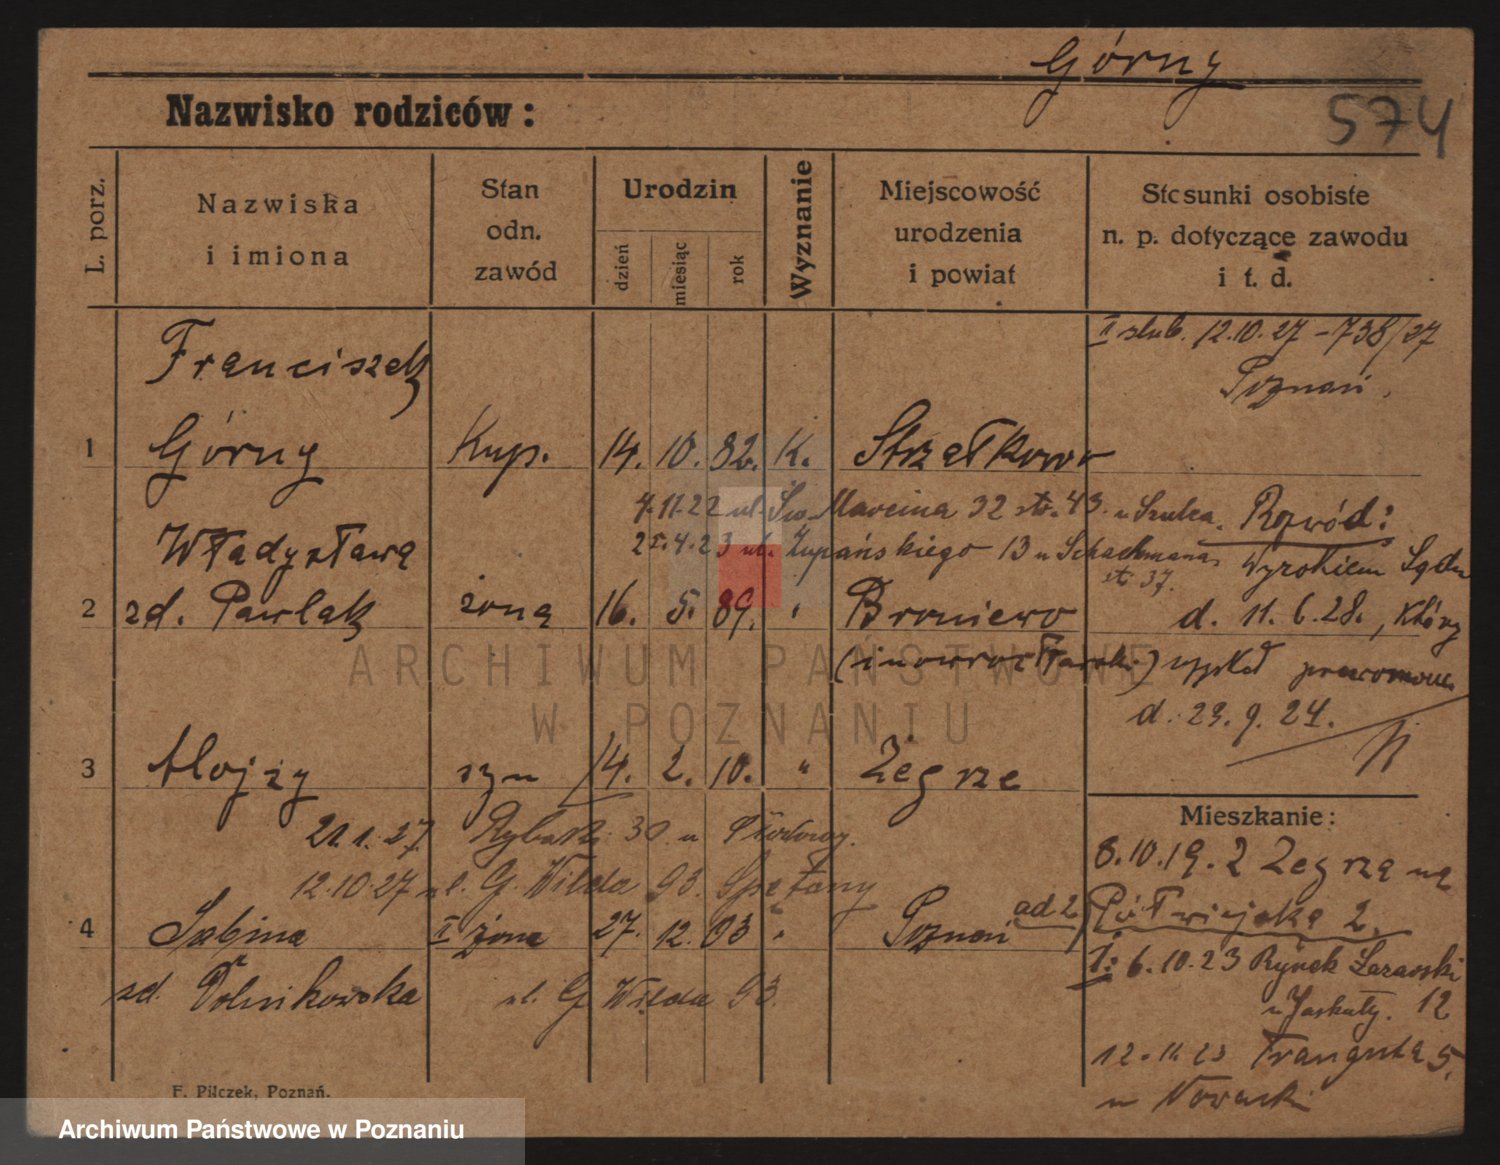 Górny
574
Nazwisko rodziców:
L. porz.
Nazwiska
i imiona
Stan
odn.
zawód
Urodzin
dzień
miesiąc
rok
Wyznanie
Miejscowość
urodzenia
i powiat
Stosunki osobiste
n. p. dotyczące zawodu
i t. d.
II ślub. 12.10.27 - 738/27
Poznań,
Franciszek
1 Górny Kup. 14. 10. 82. K. Strzałkowo
4.11.22 ul. Św. Marcina 32 str. 43. u Szulca.
Rozwód:
Władysława
25.4.23 ul. Żupańskiego 13 u Schachmana
str. 37.
Wyrokiem Sądu
2 zd. Pawlak żona 16. 5. 89. " Broniewo
d. 11.6.28., który
(inowrocławski)
d. 29.9.24.
3 Alojzy syn 14. 2. 10. " Żegrze
Mieszkanie:
21.1.27. Rybaki 30 u
12.10.27 ul. G. Wilda 93.
8.10.19. z Żegrza na
4 Sabina II żona 27. 12. 03 " Poznań
ad 2
Półwiejska 2.
zd. Dolnikowska ul. G Wilda 93.
1: 6.10.23 Rynek Łazarski
12
12.11.23 5.
u Nowacki
F. Pilczek, Poznań.
ARCHIWUM PAŃSTWOWE
W POZNANIU
Archiwum Państwowe w Poznaniu